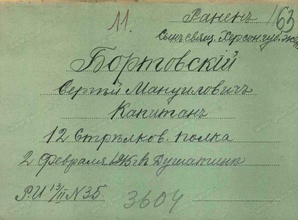 11. Раненъ 163
Сынъ свящ. Херсон. губ.
Бортовскій
Сергѣй Мануиловичъ
Капитанъ
12 Стрѣлков. полка
2 Февраля 1915 г.
Р.И 13/III N 35
3604